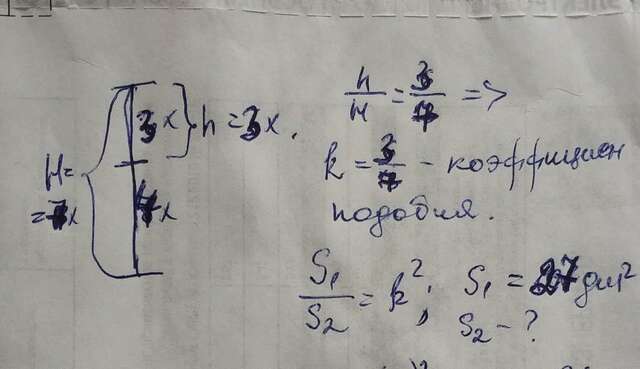 3x
h = 3x.
H =
= 7x
4x
h/H = 3/7 =>
k = 3/7 - коэффициен
подобия.
S₁/S₂ = k²; S₁ = 27 дм²
S₂ - ?